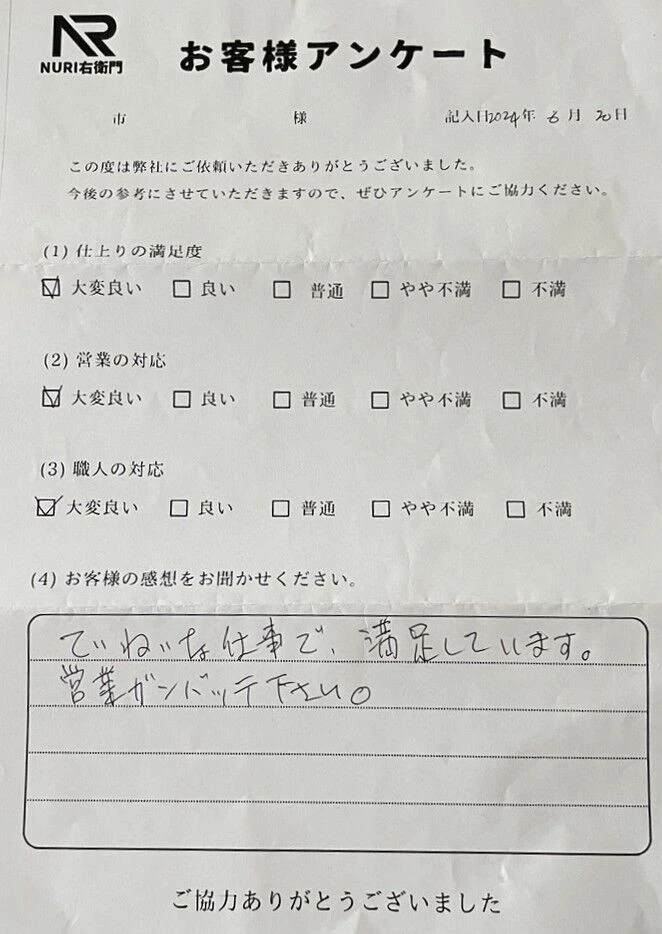 NR
NURI右衛門
お客様アンケート
市 様 記入日2024年 6月 20日
この度は弊社にご依頼いただきありがとうございました。
今後の参考にさせていただきますので、ぜひアンケートにご協力ください。
(1) 仕上りの満足度
☑ 大変良い □ 良い □ 普通 □ やや不満 □ 不満
(2) 営業の対応
☑ 大変良い □ 良い □ 普通 □ やや不満 □ 不満
(3) 職人の対応
☑ 大変良い □ 良い □ 普通 □ やや不満 □ 不満
(4) お客様の感想をお聞かせください。
でいねいな仕事で、満足しています。
営業ガンバッテ下さい。
ご協力ありがとうございました